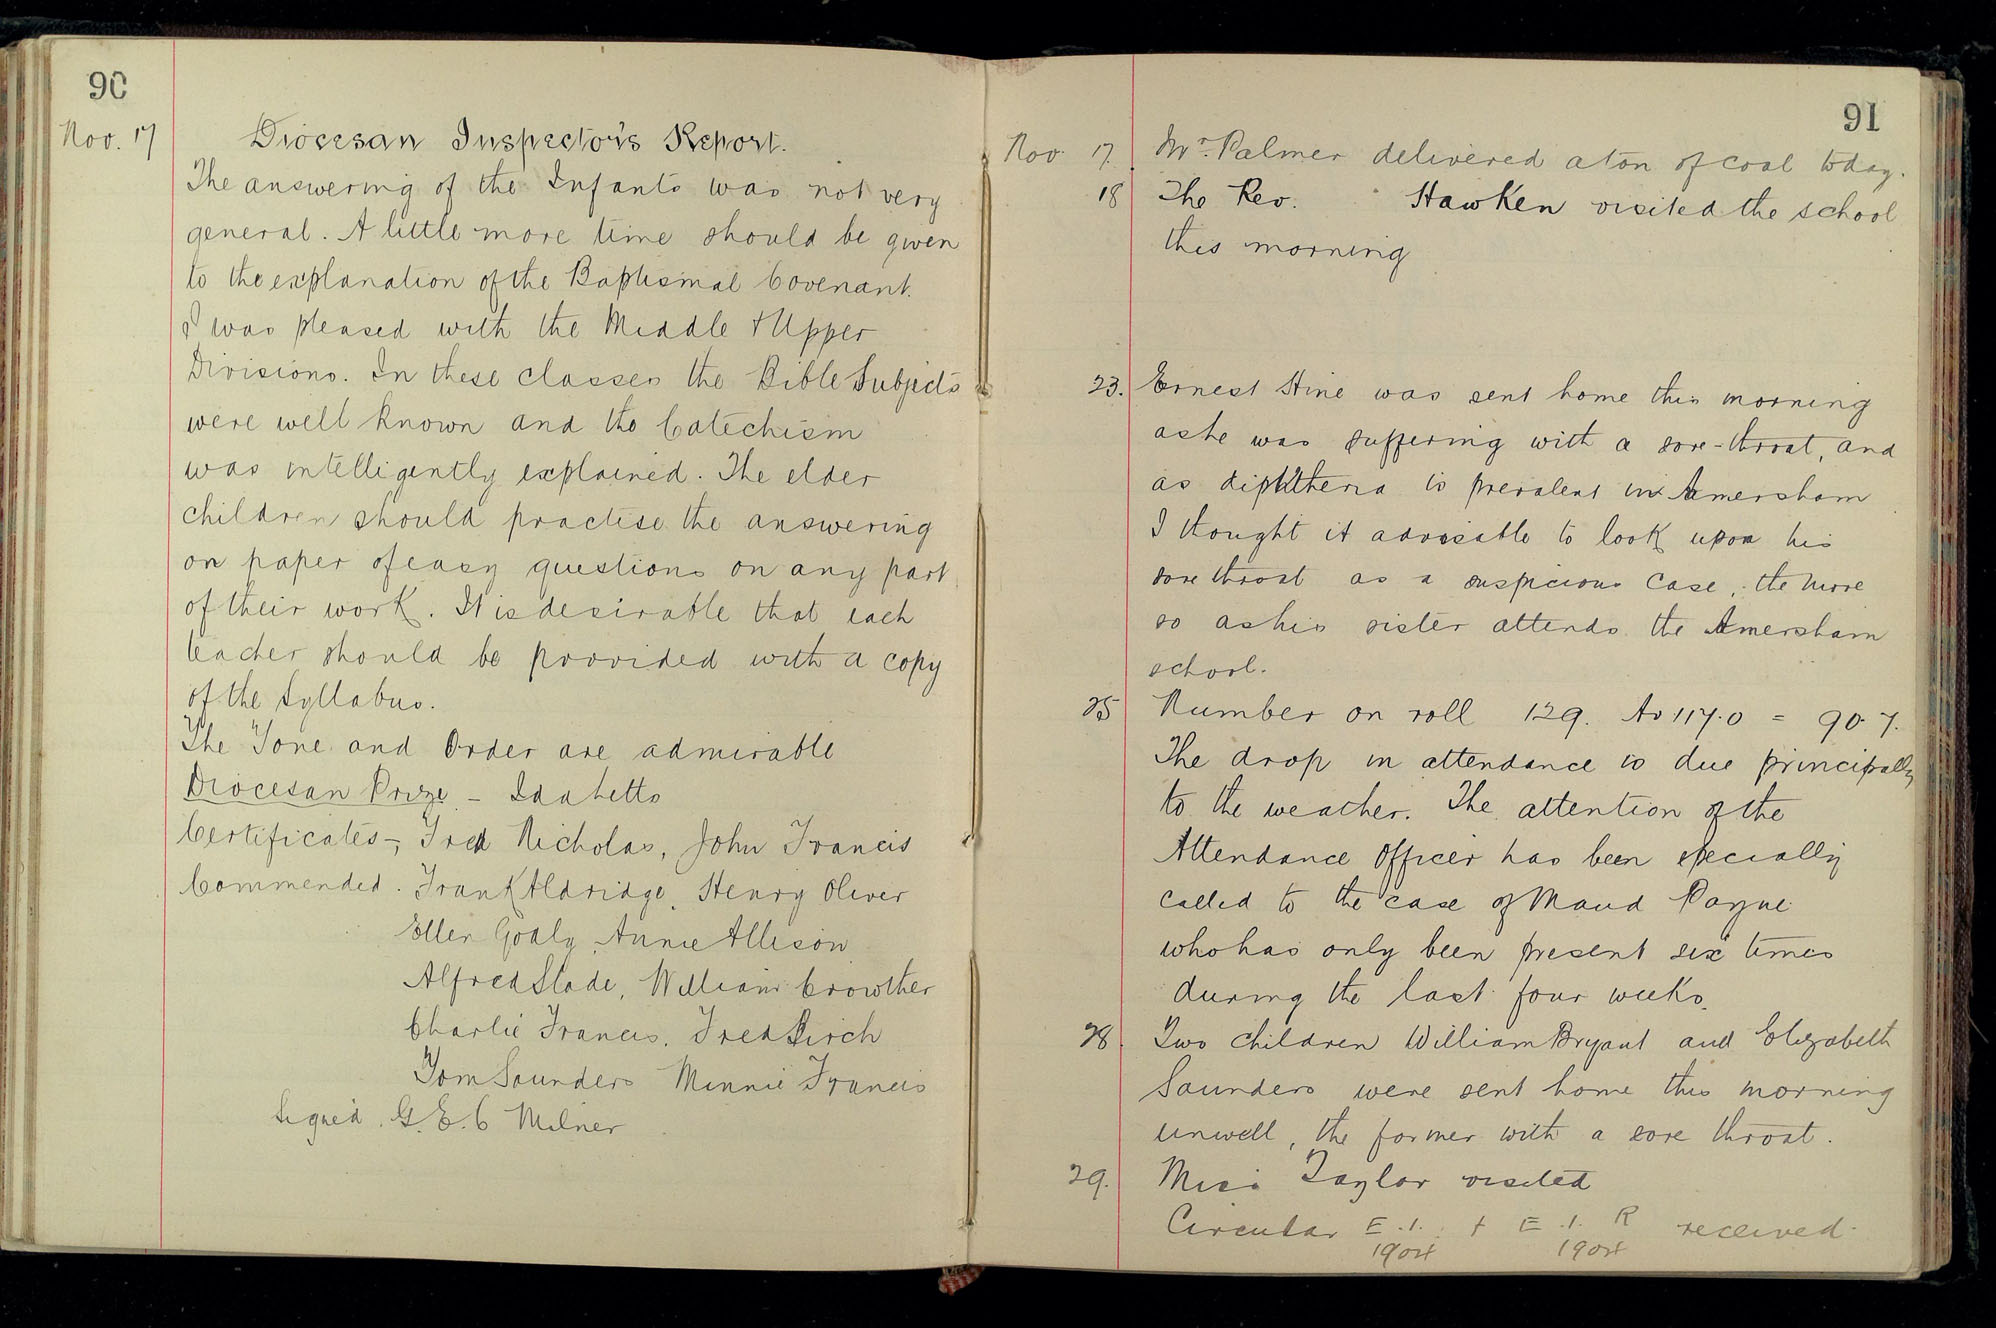 90
Nov. 17
Diocesan Inspector's Report.
The answering of the Infants was not very
general. A little more time should be given
to the explanation of the Baptismal Covenant.
I was pleased with the Middle + Upper
Divisions. In these classes the Bible Subjects
were well known and the Catechism
was intelligently explained. The elder
children should practise the answering
on paper of easy questions on any part
of their work. It is desirable that each
teacher should be provided with a copy
of the Syllabus.
The Tone and Order are admirable
Diocesan Prize - Ida
Certificates - Fred Nicholas, John Francis
Commended. Frank Aldridge, Henry Oliver
Ellen Annie Allison
Alfred Slade, William Crowther
Charlie Francis. Fred Birch
Tom Saunders Minnie Francis
Signed. G. E. C Milner
91
Nov. 17. Mr. Palmer delivered a ton of coal today.
18 The Rev. Hawken visited the school
this morning
23. Ernest Hine was sent home this morning
as he was suffering with a sore-throat, and
as diphtheria is prevalent in Amersham
I thought it advisable to look upon his
sore throat as a suspicious case, the more
so as his sister attends the Amersham
school.
25 Number on roll 129. Av 117.0 = 90.7.
The drop in attendance is due principally
to the weather. The attention of the
Attendance Officer has been specially
called to the case of Maud Payne
who has only been present six times
during the last four weeks.
28. Two children William Bryant and Elizabeth
Saunders were sent home this morning
unwell, the former with a sore throat.
29. Miss Taylor visited
Circular E.1. + E.1. R received
1904 1904